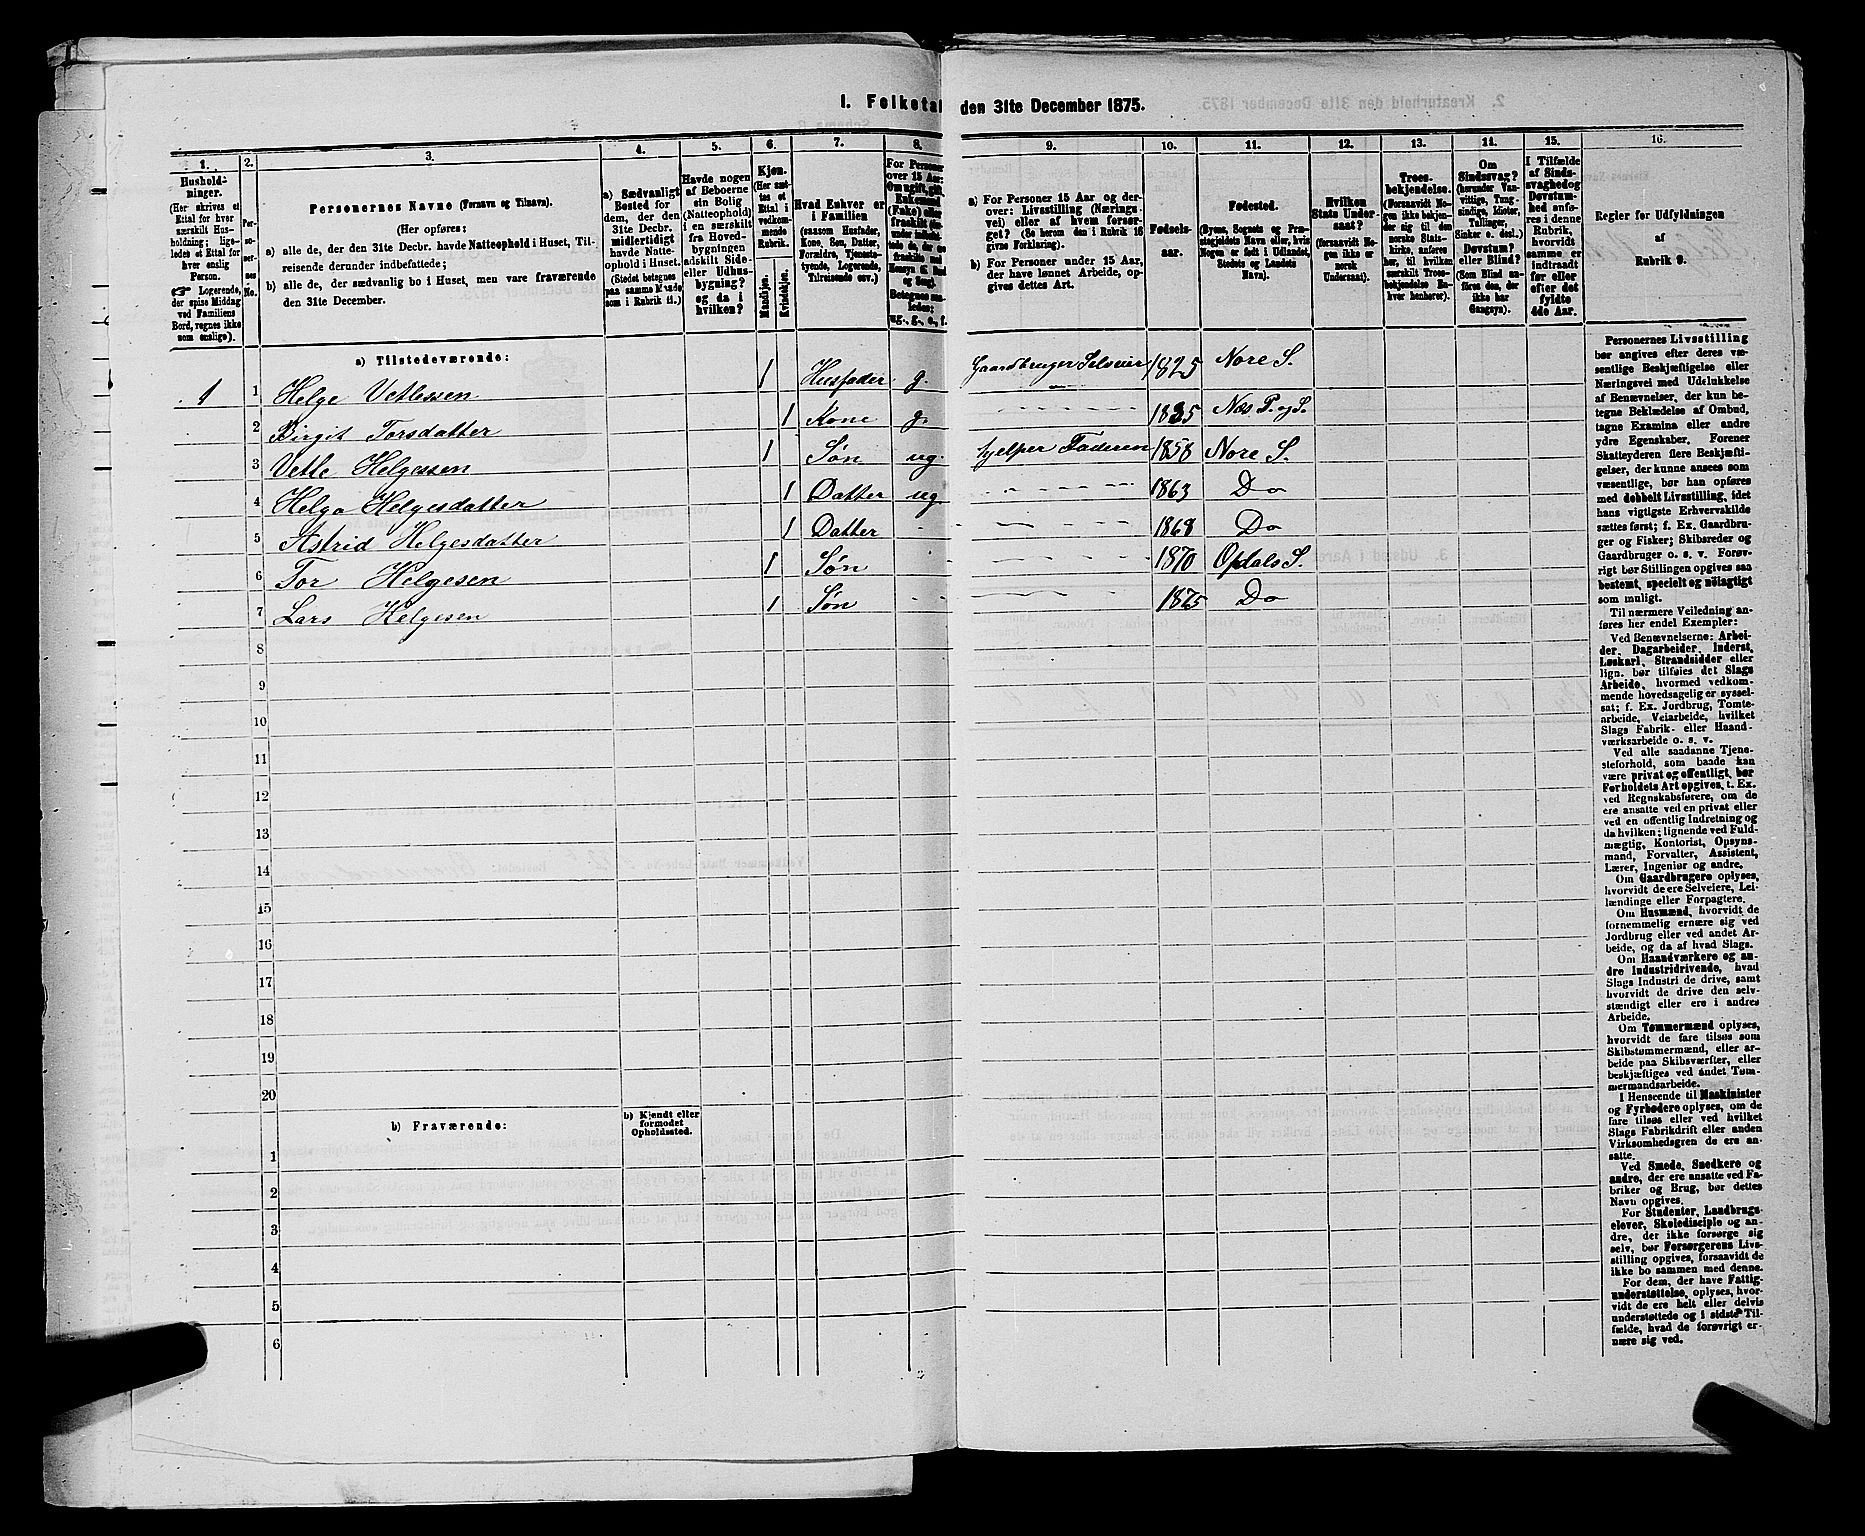 1. Folketal den 31te December 1875.
1.
Hushold-
ninger.
(Her skrives et
Ettal for hver
særskilt Hus-
holdning; lige-
ledes et Ettal for
hver enslig
Person.
☞ Logerende,
der spise Middag
ved Familiens
Bord, regnes ikke
som enslige).
2.
Per-
so-
ner-
nes
No.
3.
Personernes Navne (Fornavn og Tilnavn).
(Her opføres:
a) alle de, der den 31te Decbr. havde Natteophold i Huset, Til-
reisende derunder indbefattede;
b) alle de, der sædvanlig bo i Huset, men vare fraværende
den 31te December.
4.
a) Sædvanligt
Bosted for
dem, der den
31te Decbr.
midlertidigt
havde Natte-
ophold i Huset.
(Stedet betegnes
paa samme Maade
som i Rubrik 11.)
5.
Havde nogen
af Beboerne
sin Bolig
(Natteophold)
i en særskilt
fra Hoved-
bygningen
adskilt Side-
eller Udhus-
bygning?
og da i
hvilken?
6.
Kjøn.
(Her sæt-
tes et
Ettal i
vedkom-
mende
Rubrik.
Mandkjøn.
Kvindekjøn.
7.
Hvad Enhver er
i Familien
(saasom Husfader,
Kone, Søn, Datter,
Forældre, Tjeneste-
tyende, Logerende,
Tilreisende osv.)
8.
For Personer
over 15 Aar:
Om ugift, gift,
Enkemand
(Enke) eller
fraskilt
9.
a) For Personer 15 Aar og der-
over: Livsstilling (Nærings-
vei) eller af hvem forsør-
get? (Se herom den i Rubrik 16
givne Forklaring).
b) For Personer under 15 Aar,
der have lønnet Arbeide, op-
gives dettes Art.
10.
Fødsels-
aar.
11.
Fødested.
(Byens, Sognets og Præ-
stegjeldets Navn eller, hvis
Nogen er født i Udlandet,
Stedets og Landets
Navn).
12.
Hvilken
Stats Under-
saat?
(forsaavidt No-
gen ikke er
norsk
Undersaat).
13.
Troes-
bekjendelse.
(Forsaavidt No-
gen ikke bekjen-
der sig til den
norske Stats-
kirke, anføres
her, til hvilken
særskilt Troes-
bekjendelse En-
hver henhører).
14.
Om
Sindssvag?
(herunder Van-
vittige, Tung-
sindige, Idioter,
Tullinger,
Sinker o. desl.)
Døvstum?
eller Blind?
(Som Blind an-
føres den, der
ikke har
Gangsyn).
15.
I Tilfælde
af Sinds-
svaghed og
Døvstum-
hed anfø-
res i denne
Rubrik,
hvorvidt
samme er
indtraadt
før eller
efter det
fyldte
4de Aar.
16.
Regler for Udfyldningen
af
Rubrik 9.
a) Tilstedeværende:
1 1 Helge Vetlessen 1 Husfader g. Gaardbruger Selveier 1825 Nore S.
2 Birgit Torsdatter 1 Kone g. 1835 Næs P. og S.
3 Vetle Helgessen 1 Søn ug. hjelper Faderen 1858 Nore S.
4 Helga Helgesdatter 1 Datter ug 1863 Do
5 Astrid Helgesdatter 1 Datter 1868 Do
6 Tor Helgesen 1 Søn 1870 Opdals S.
7 Lars Helgesen 1 Søn 1875 Do
8
9
10
11
12
13
14
15
16
17
18
19
20
b) Fraværende:
b) Kjendt eller
formodet
Opholdssted.
1
2
3
4
5
6
Personernes Livsstilling
bør angives efter deres væ-
sentlige Beskjæftigelse eller
Næringsvei med Udelukkelse
af Benævnelser, der kun be-
tegne Beklædelse af Ombud,
tagne Examina eller andre
ydre Egenskaber. Forener
Skatteyderen flere Beskjæfti-
gelser, der kunne ansees som
væsentlige, bør han opføres
med dobbelt Livsstilling, idet
hans vigtigste Erhvervskilde
sættes først; f. Ex. Gaardbru-
ger og Fisker; Skibsreder og
Gaardbruger o. s. v. Forøv-
rigt bør Stillingen opgives saa
bestemt, specielt og nøiagtigt
som muligt.
Til nærmere Veiledning an-
føres her endel Exempler:
Ved Benævnelserne: Arbei-
der, Dagarbeider, Inderst,
Løskarl, Strandsidder eller
lign. bør tilføies det Slags
Arbeide, hvormed vedkom-
mende hovedsagelig er syssel-
sat; f. Ex. Jordbrug, Tomte-
arbeide, Veiarbeide, hvilket
Slags Fabrik- eller Haand-
værksarbeide o. s. v.
Ved alle saadanne Tjene-
steforhold, som baade kan
være privat og offentligt, bør
Forholdets Art opgives, t. Ex.
ved Regnskabsførere, om de
ere ansatte ved en privat eller
ved en offentlig Indretning og
da hvilken; lignende ved Fuld-
mægtig, Kontorist, Opsyns-
mand, Forvalter, Assistent,
Lærer, Ingeniør og andre.
Om Gaardbrugere oplyses,
hvorvidt de ere Selveiere, Lei-
lændinge eller Forpagtere.
Om Husmænd, hvorvidt de
fornemmelig ernære sig ved
Jordbrug eller ved andet Ar-
beide, og da af hvad Slags.
Om Haandværkere og an-
dre Industridrivende, hvad
Slags Industri de drive, samt
hvorvidt de drive den selv-
stændigt eller ere i andres
Arbeide.
Om Tømmermænd oplyses,
hvorvidt de fare tilsøs som
Skibstømmermænd, eller ar-
beide paa Skibsværfter, eller
beskjæftiges ved andet Tøm-
mermandsarbeide.
I Henseende til Maskinister
og Fyrbødere oplyses, om de
fare tilsøs eller ved hvilket
Slags Fabrikdrift eller anden
Virksomhedsgren de ere an-
satte.
Ved Smede, Snedkere og
andre, der ere ansatte ved Fa-
briker og Brug, bør dettes
Navn opgives.
For Studenter, Landbrugs-
elever, Skoledisciple og an-
dre, der ikke forsørge sig
selv, bør Forsørgerens Livs-
stilling opgives, forsaavidt de
ikke bo sammen med denne.
For dem, der have Fattig-
understøttelse, oplyses, hvor-
vidt de ere helt eller delvis
understøttede og i sidste Til-
fælde, hvad de forøvrigt er-
nære sig ved.